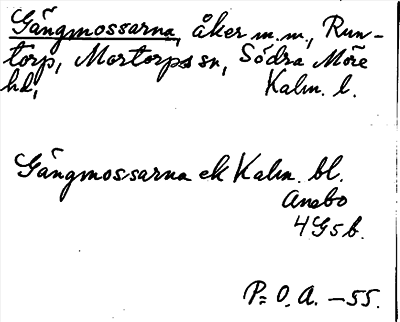 Gångmossarna, åker m.m., Run-
torp, Mortorps sn, Södra Möre
hd, Kalm. l.
Gångmossarna ek Kalm. bl.
Anebo
4G5b.
P= O.A. -55.